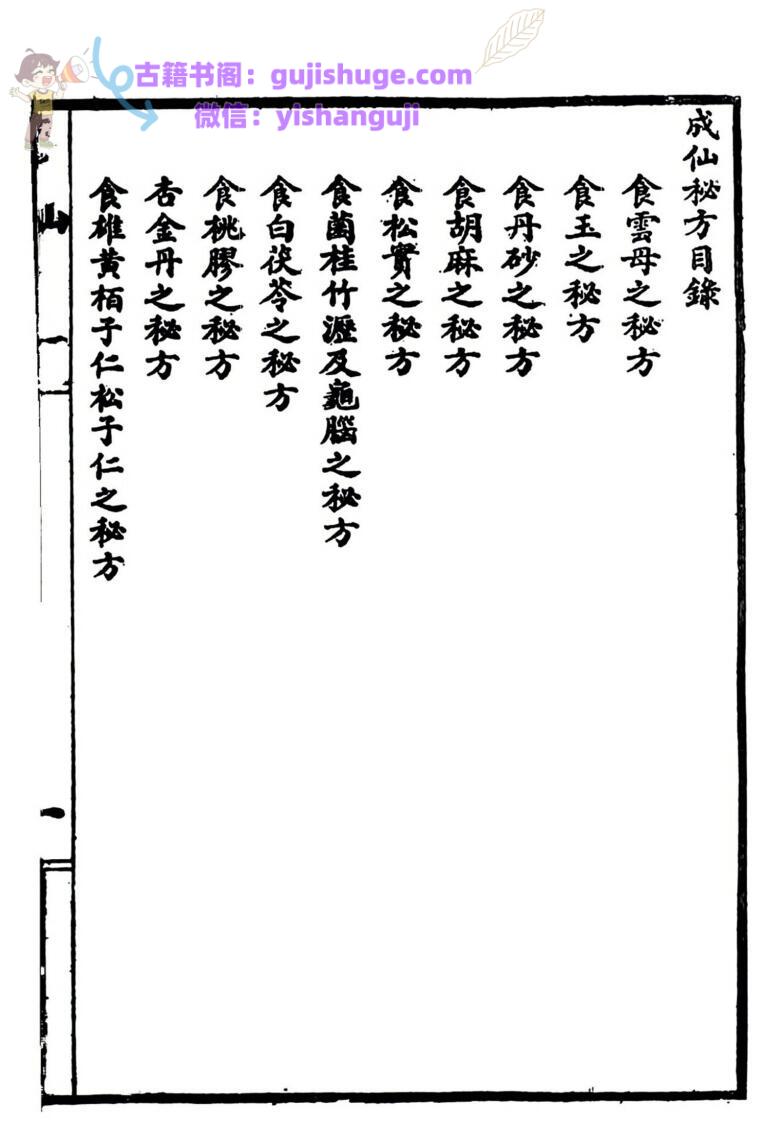 古籍书阁：gujishuge.com
微信：yishanguji
成仙秘方目錄
食雲母之秘方
食玉之秘方
食丹砂之秘方
食胡麻之秘方
食松實之秘方
食菌桂竹瀝及龜腦之秘方
食白茯苓之秘方
食桃膠之秘方
杏金丹之秘方
食雄黃栢子仁松子仁之秘方
一